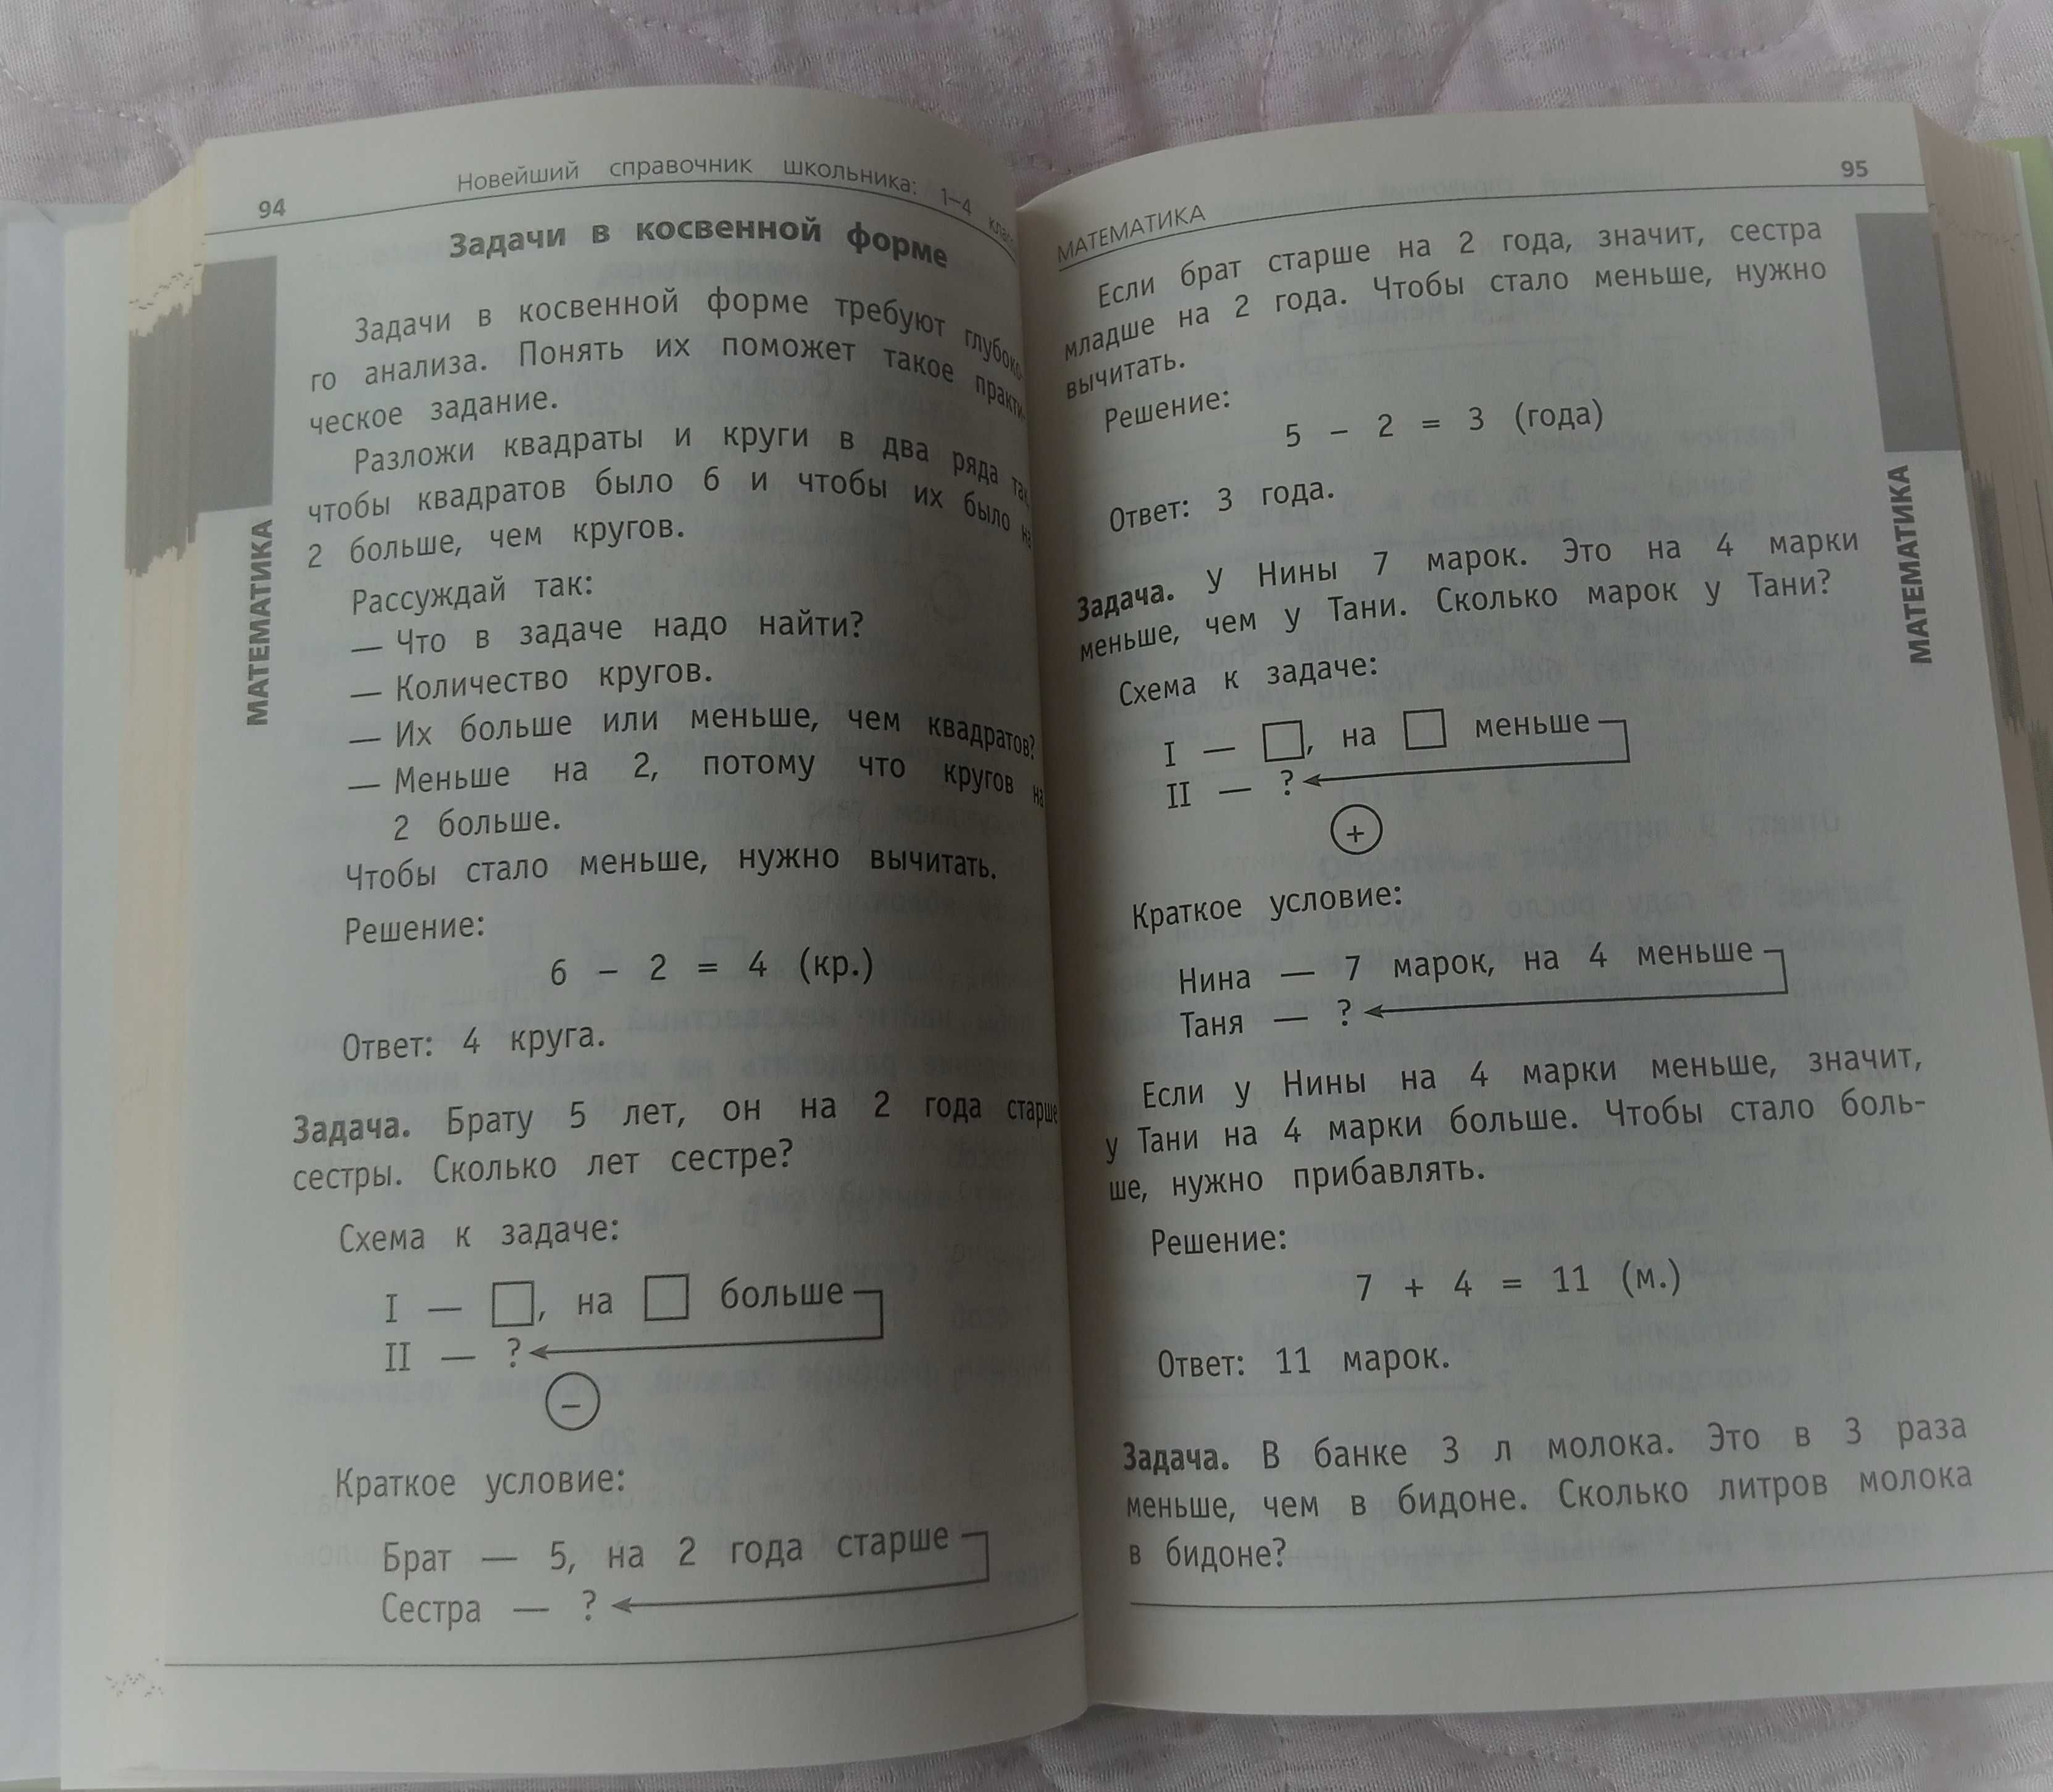 94
Новейший справочник школьника: 1–4 класс
Задачи в косвенной форме
Задачи в косвенной форме требуют глубоко-
го анализа. Понять их поможет такое практи-
ческое задание.
Разложи квадраты и круги в два ряда так,
чтобы квадратов было 6 и чтобы их было на
2 больше, чем кругов.
Рассуждай так:
— Что в задаче надо найти?
— Количество кругов.
— Их больше или меньше, чем квадратов?
— Меньше на 2, потому что кругов на
2 больше.
Чтобы стало меньше, нужно вычитать.
Решение:
6 – 2 = 4 (кр.)
Ответ: 4 круга.
Задача. Брату 5 лет, он на 2 года старше
сестры. Сколько лет сестре?
Схема к задаче:
I — □, на □ больше
II — ?
–
Краткое условие:
Брат — 5, на 2 года старше
Сестра — ?
МАТЕМАТИКА
МАТЕМАТИКА
95
Если брат старше на 2 года, значит, сестра
младше на 2 года. Чтобы стало меньше, нужно
вычитать.
Решение:
5 – 2 = 3 (года)
Ответ: 3 года.
Задача. У Нины 7 марок. Это на 4 марки
меньше, чем у Тани. Сколько марок у Тани?
Схема к задаче:
I — □, на □ меньше
II — ?
+
Краткое условие:
Нина — 7 марок, на 4 меньше
Таня — ?
Если у Нины на 4 марки меньше, значит,
у Тани на 4 марки больше. Чтобы стало боль-
ше, нужно прибавлять.
Решение:
7 + 4 = 11 (м.)
Ответ: 11 марок.
Задача. В банке 3 л молока. Это в 3 раза
меньше, чем в бидоне. Сколько литров молока
в бидоне?
МАТЕМАТИКА